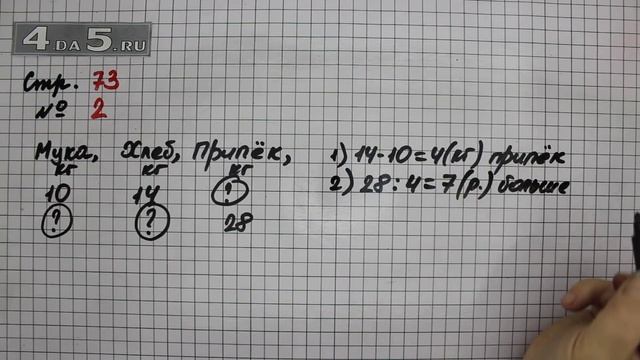 4 DA 5.RU
Стр. 73
№ 2
Мука, Хлеб, Припёк,
кг кг кг
10 14 ?
? ? 28
1) 14-10=4(кг) припёк
2) 28:4=7(р.) больше